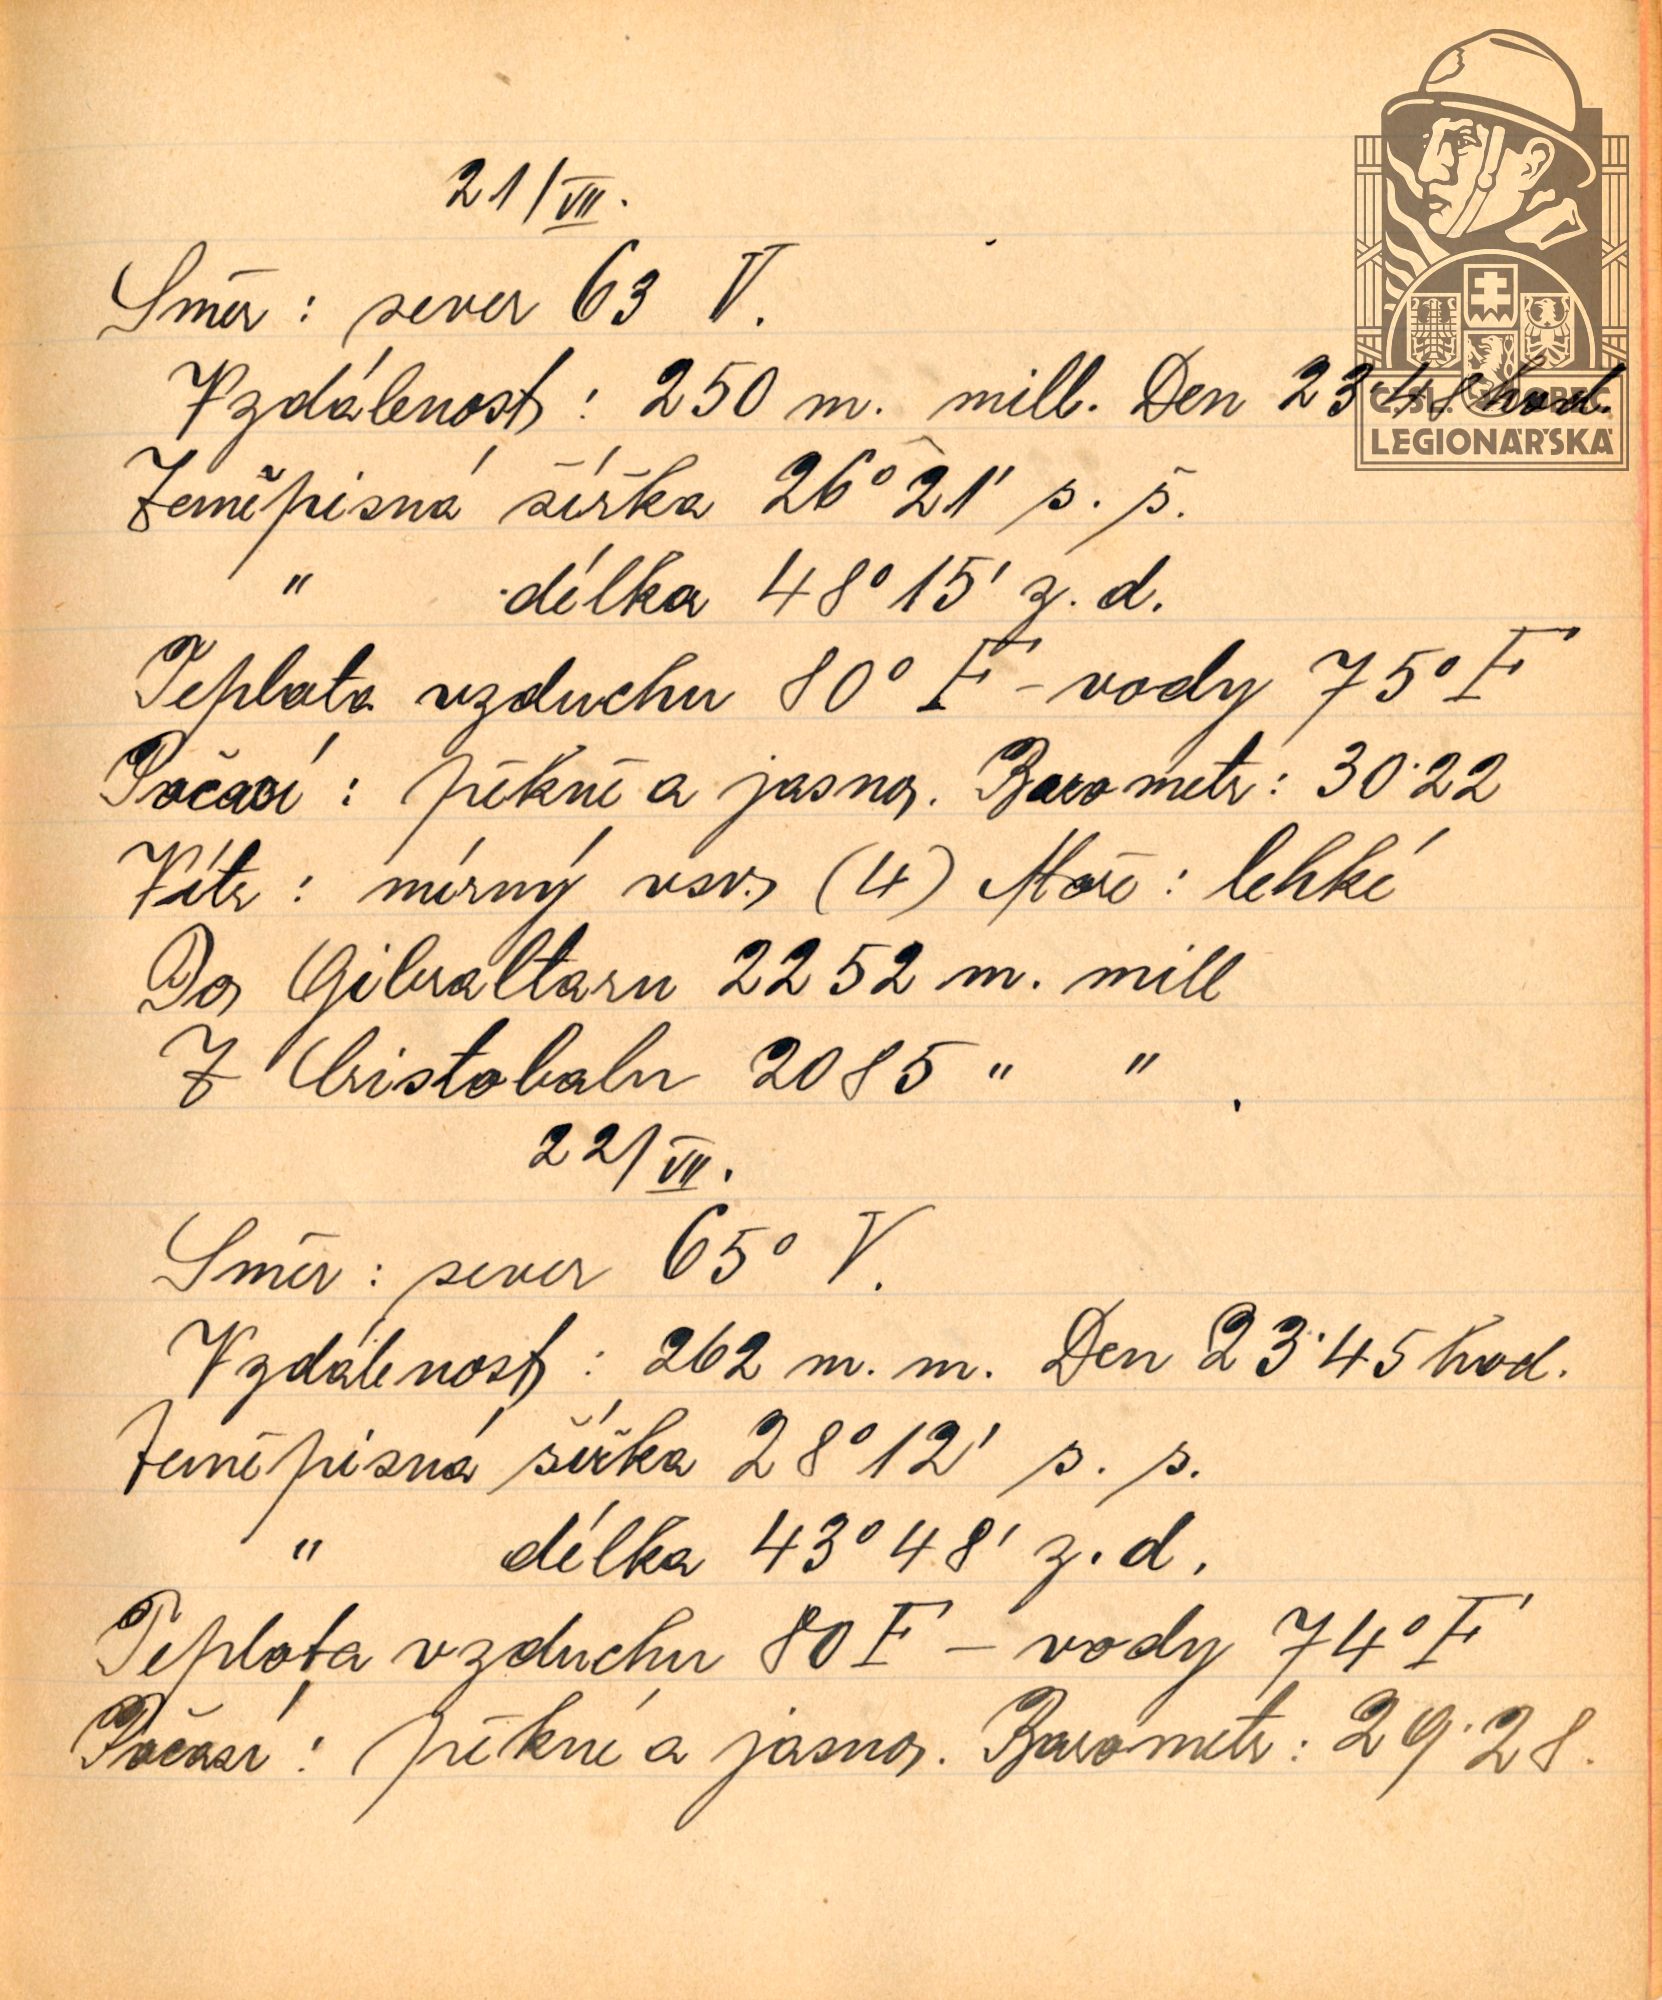 21/VII.
Směr: sever 63 V.
Vzdálenost: 250 m. mill. Den 23·48 hod.
Zeměpisná šířka 26°21' s. š.
" délka 48°15' z. d.
Teplota vzduchu 80° F - vody 75° F
Počasí: pěkné a jasno. Barometr: 30·22
Vítr: mírný vsv. (4) Moře: lehké
Do Gibraltaru 2252 m. mill
Z Cristobalu 2085 " "
22/VII.
Směr: sever 65° V.
Vzdálenost: 262 m. m. Den 23·45 hod.
Zeměpisná šířka 28°12' s. s.
" délka 43°48' z. d.
Teplota vzduchu 80 F - vody 74° F
Počasí: pěkné a jasno. Barometr: 29·28.
ČSL. OBEC
LEGIONÁŘSKÁ